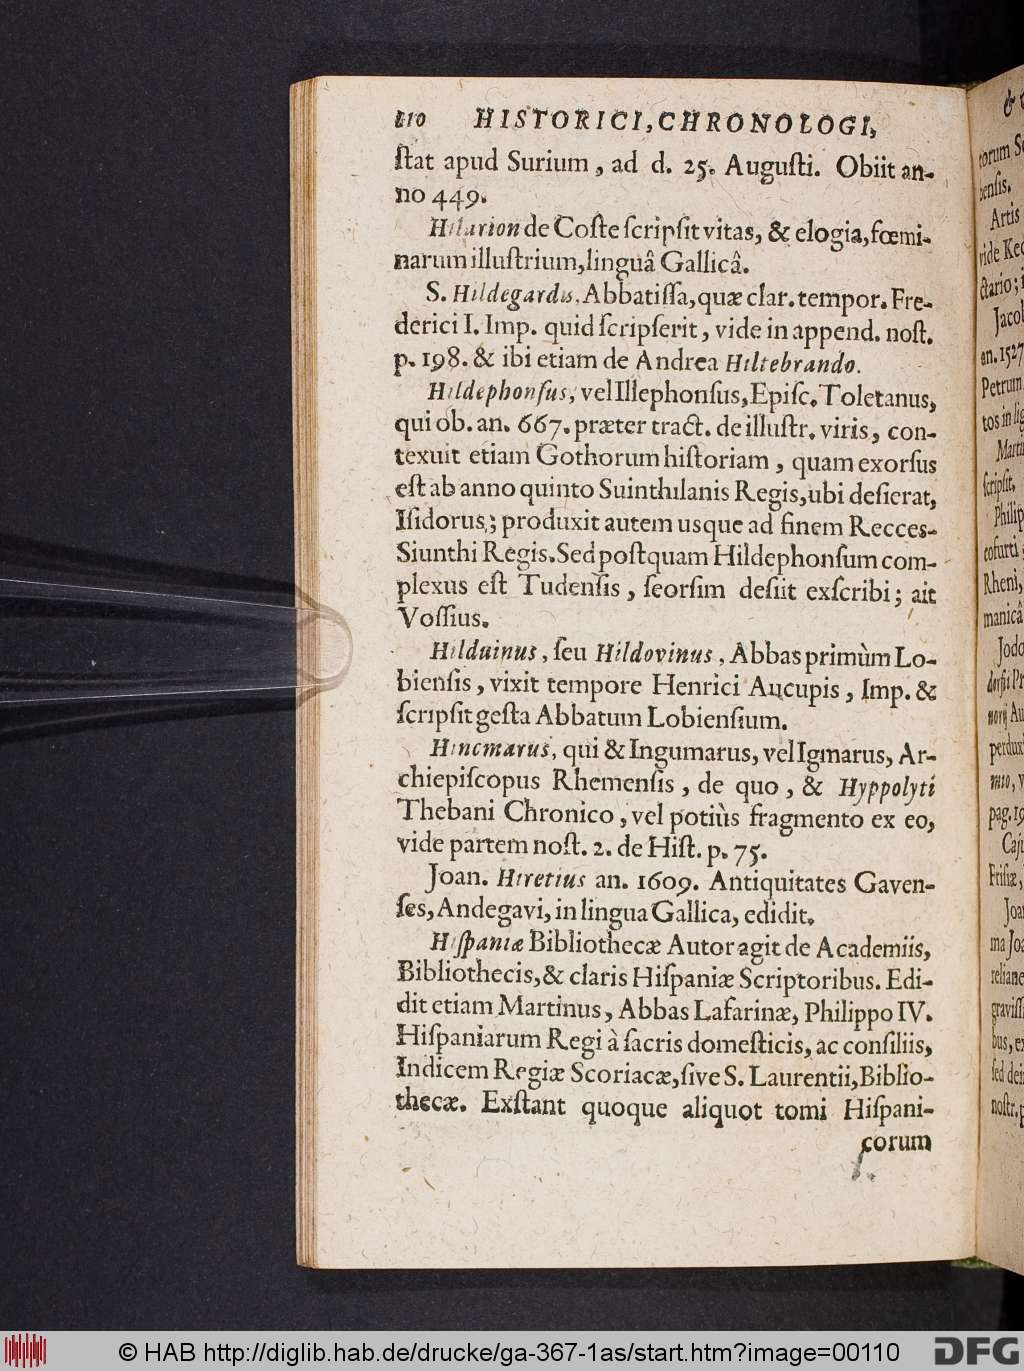 110 HISTORICI, CHRONOLOGI,
ſtat apud Surium, ad d. 25. Auguſti. Obiit an-
no 449.
Hilarion de Coſte ſcripſit vitas, & elogia, fœmi-
narum illuſtrium, linguâ Gallicâ.
S. Hildegardis, Abbatiſſa, quæ clar. tempor. Fre-
derici I. Imp. quid ſcripſerit, vide in append. noſt.
p. 198. & ibi etiam de Andrea Hiltebrando.
Hildephonſus, vel Illephonſus, Epiſc. Toletanus,
qui ob. an. 667. præter tract. de illuſtr. viris, con-
texuit etiam Gothorum hiſtoriam, quam exorſus
eſt ab anno quinto Suinthilanis Regis, ubi deſierat,
Iſidorus; produxit autem usque ad finem Recces-
Siunthi Regis. Sed poſtquam Hildephonſum com-
plexus eſt Tudenſis, ſeorſim deſiit exſcribi; ait
Voſſius.
Hilduinus, ſeu Hildovinus, Abbas primùm Lo-
bienſis, vixit tempore Henrici Aucupis, Imp. &
ſcripſit geſta Abbatum Lobienſium.
Hincmarus, qui & Ingumarus, vel Igmarus, Ar-
chiepiſcopus Rhemenſis, de quo, & Hyppolyti
Thebani Chronico, vel potiùs fragmento ex eo,
vide partem noſt. 2. de Hiſt. p. 75.
Joan. Hiretius an. 1609. Antiquitates Gaven-
ſes, Andegavi, in lingua Gallica, edidit.
Hiſpaniæ Bibliothecæ Autor agit de Academiis,
Bibliothecis, & claris Hiſpaniæ Scriptoribus. Edi-
dit etiam Martinus, Abbas Lafarinæ, Philippo IV.
Hiſpaniarum Regi à ſacris domeſticis, ac conſiliis,
Indicem Regiæ Scoriacæ, ſive S. Laurentii, Biblio-
thecæ. Exſtant quoque aliquot tomi Hiſpani-
corum
torum
Artis
vide
ctario;
an. 1527
Petrum
tos in
ſcripſit.
Philip
cofurti
Rheni,
manicâ
Jodo
perdux
pag. 19
Friſiæ,
Joa
ma
relian
noſtr. p
© HAB http://diglib.hab.de/drucke/ga-367-1as/start.htm?image=00110
DFG